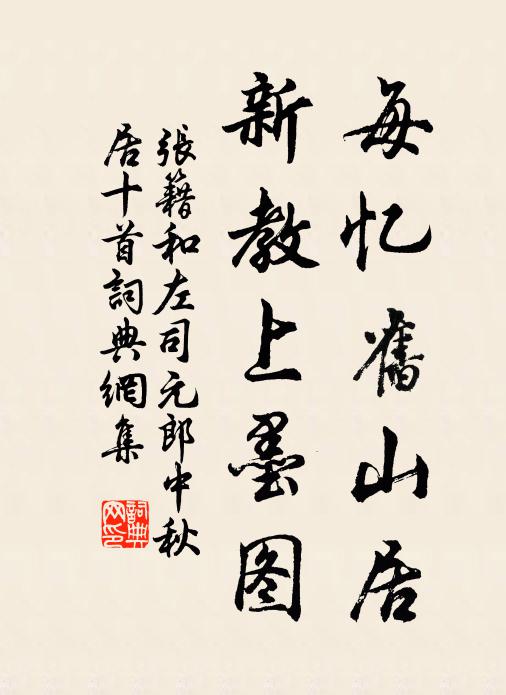 每忆舊山居
新教上墨图
張籍和左司元郎中秋
居十首詞典網集
詞典
网印